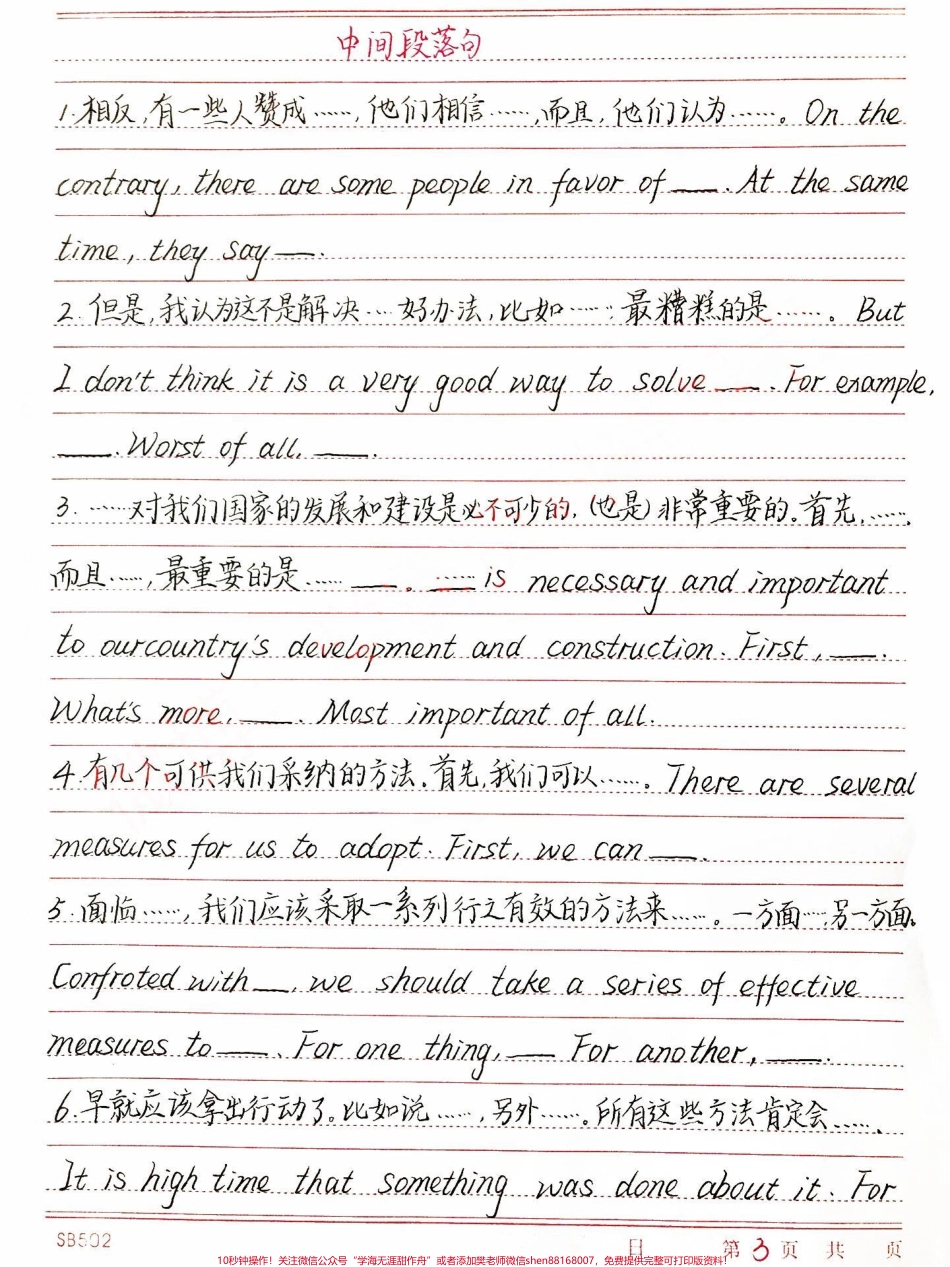 中间段落句
1.相反,有一些人赞成……,他们相信……,而且,他们认为……。On the
contrary, there are some people in favor of ___. At the same
time, they say ___.
2.但是,我认为这不是解决…好办法,比如……;最糟糕的是……。But
I don't think it is a very good way to solve ___. For example,
___. Worst of all, ___.
3.……对我们国家的发展和建设是必不可少的,(也是)非常重要的。首先,……,
而且……,最重要的是…… ___。___ …… is necessary and important
to ourcountry's development and construction. First, ___.
What's more, ___. Most important of all.
4.有几个可供我们采纳的方法.首先,我们可以……。There are several
measures for us to adopt. First, we can ___.
5.面临……,我们应该采取一系列行之有效的方法来……。一方面…,另一方面,
Confroted with ___, we should take a series of effective
measures to ___. For one thing, ___ For another, ___.
6.早就应该拿出行动了。比如说……,另外……。所有这些方法肯定会……。
It is high time that something was done about it. For
SB502 日 第3页 共 页
10秒钟操作!关注微信公众号“学海无涯甜作舟”或者添加樊老师微信shen88168007,免费提供完整可打印版资料!